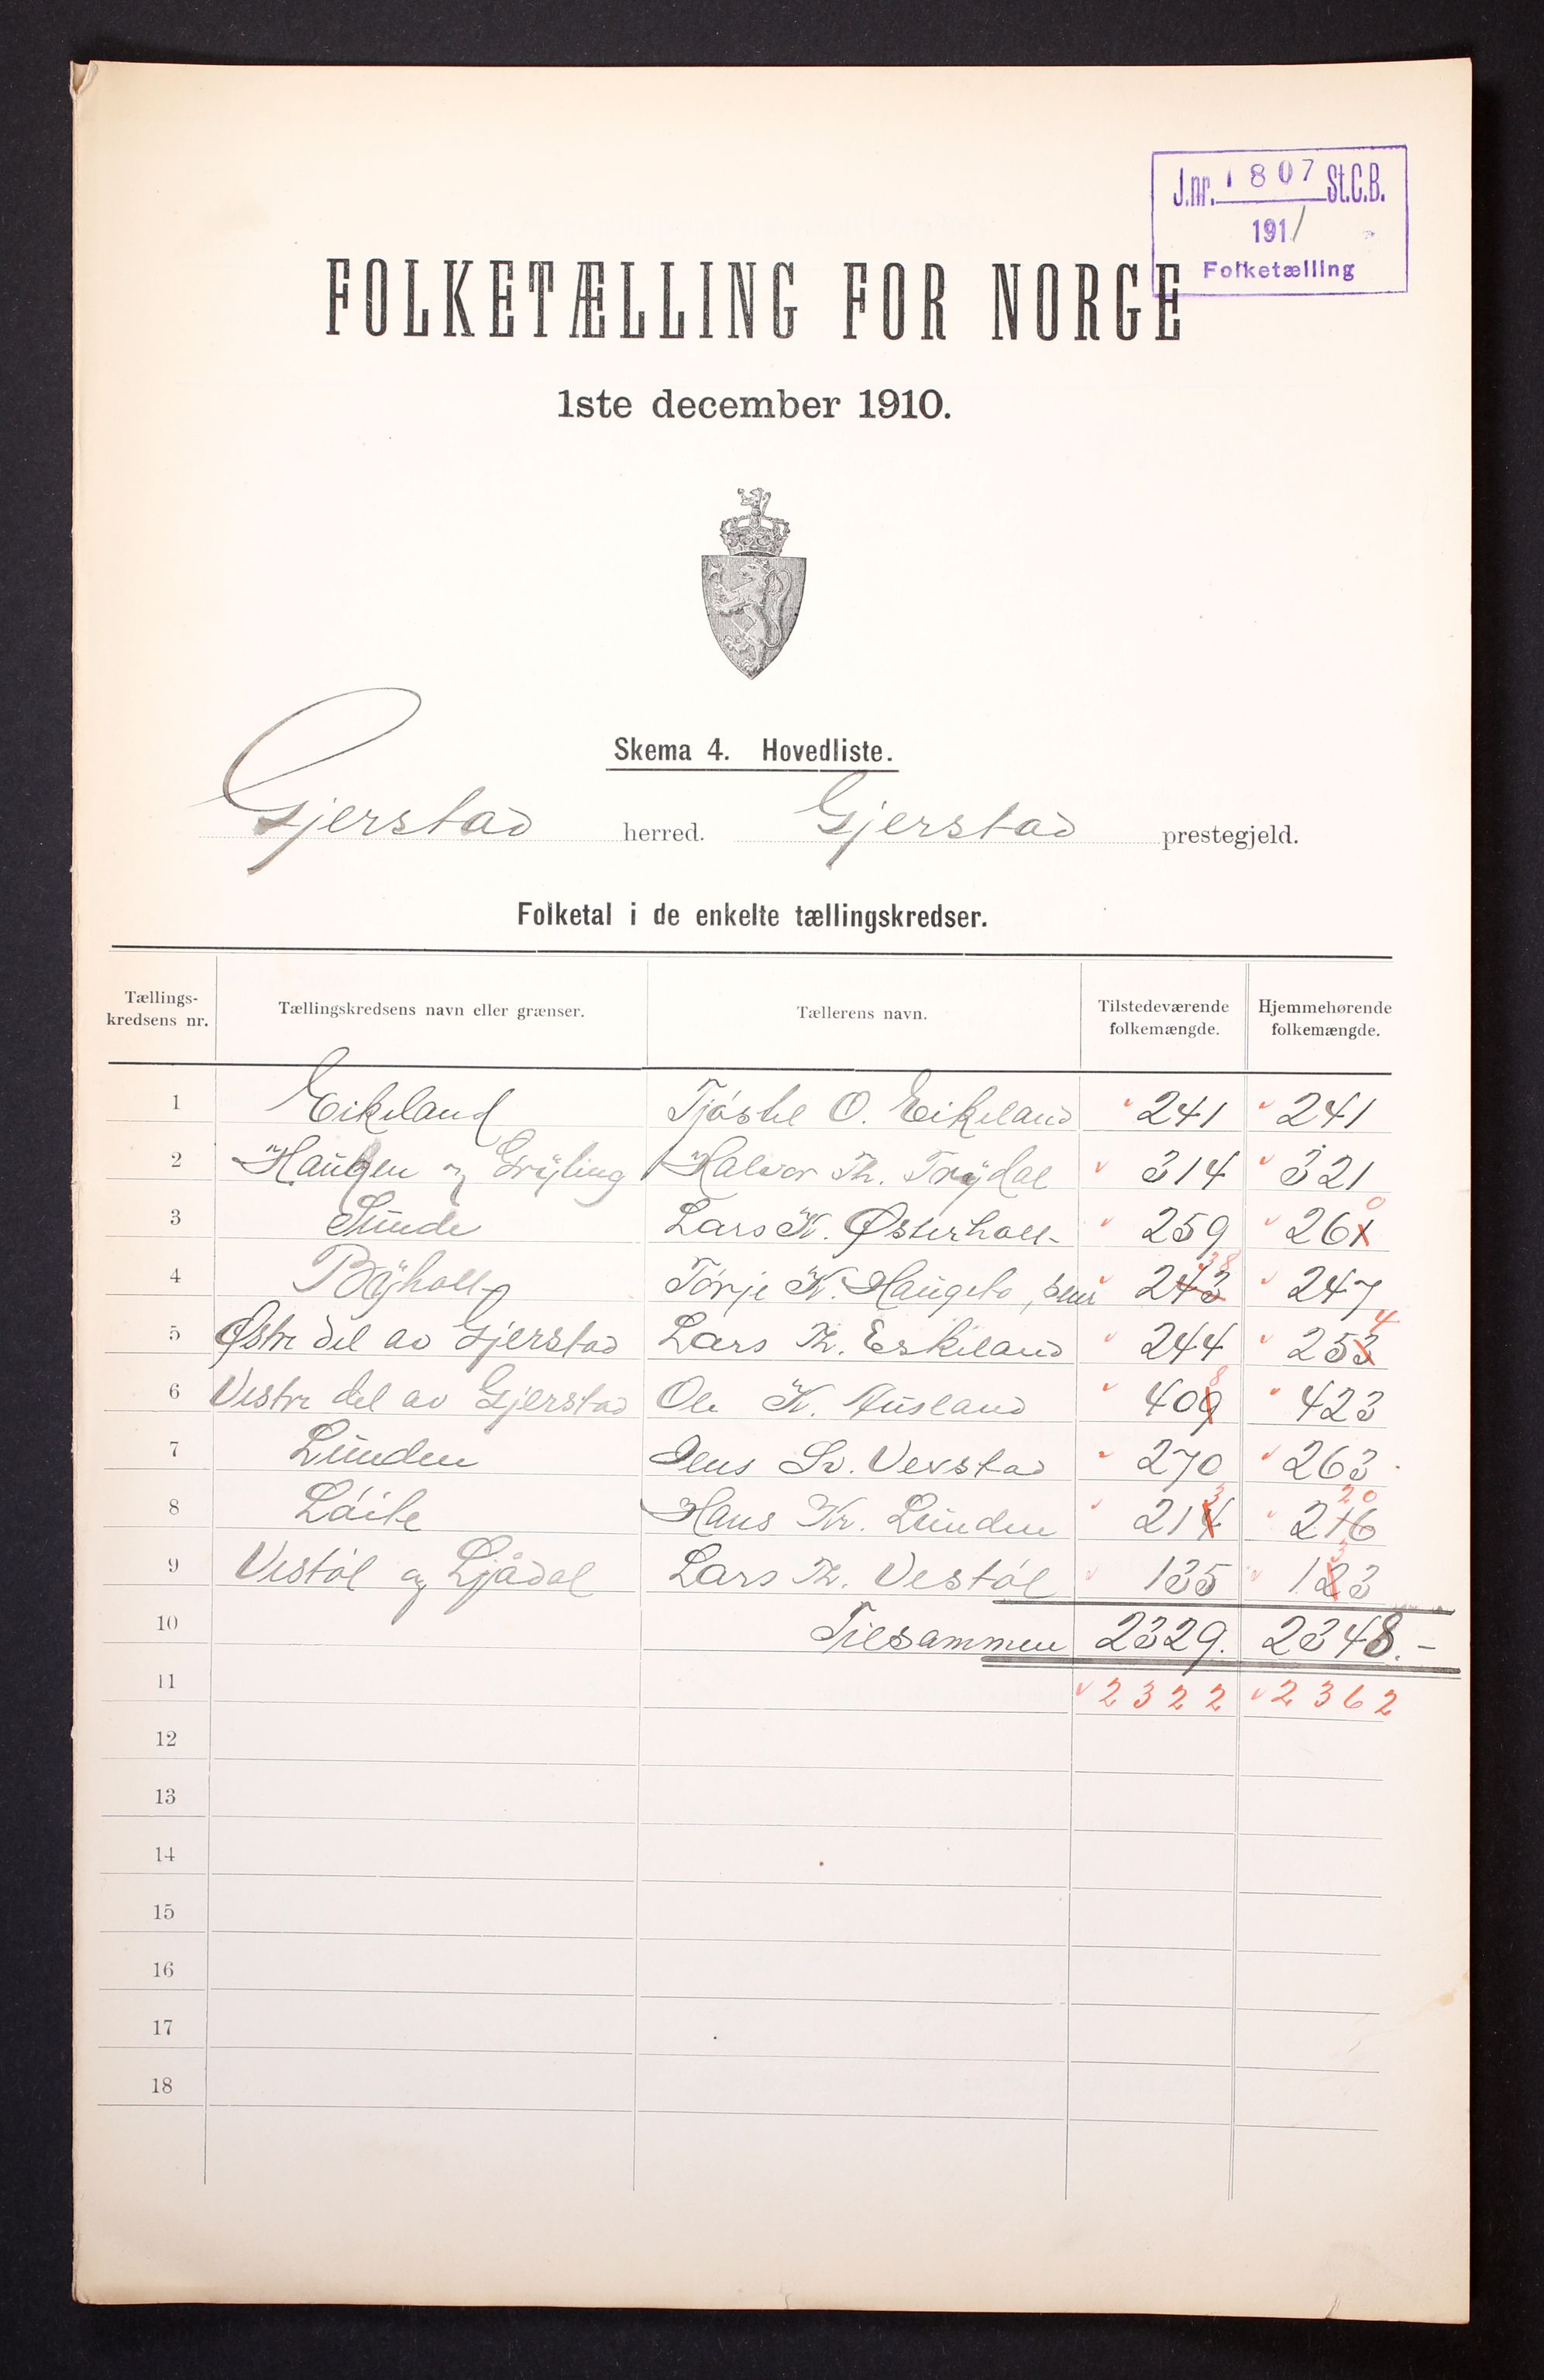 J.nr. 1807 St.C.B.
1911
Folketælling
FOLKETÆLLING FOR NORGE
1ste december 1910.
Skema 4. Hovedliste.
Gjerstad herred. Gjerstad prestegjeld.
Folketal i de enkelte tællingskredser.
Tællings-kredsens nr. Tællingskredsens navn eller grænser. Tællerens navn. Tilstedeværende folkemængde. Hjemmehørende folkemængde.
1 Eikeland O. Eikeland 241 241
2 Haugen og Halvor Th. 314 321
3 Sunde Lars K. Østerholt 259 261 0
4 K. Haugeto, 243 38 247
5 Østre del av Gjerstad Lars Th. Eskeland 244 253 4
6 Vestre del av Gjerstad Ole K. Ausland 409 8 423
7 Lunden Jens Sv. Vevstad 270 263
8 Løite Hans Kr. Lunden 214 3 216 20
9 Vestøl og Ljådal Lars Th. Vestøl 135 123 3
10 Tilsammen 2329. 2348.-
11 2322 2362
12
13
14
15
16
17
18